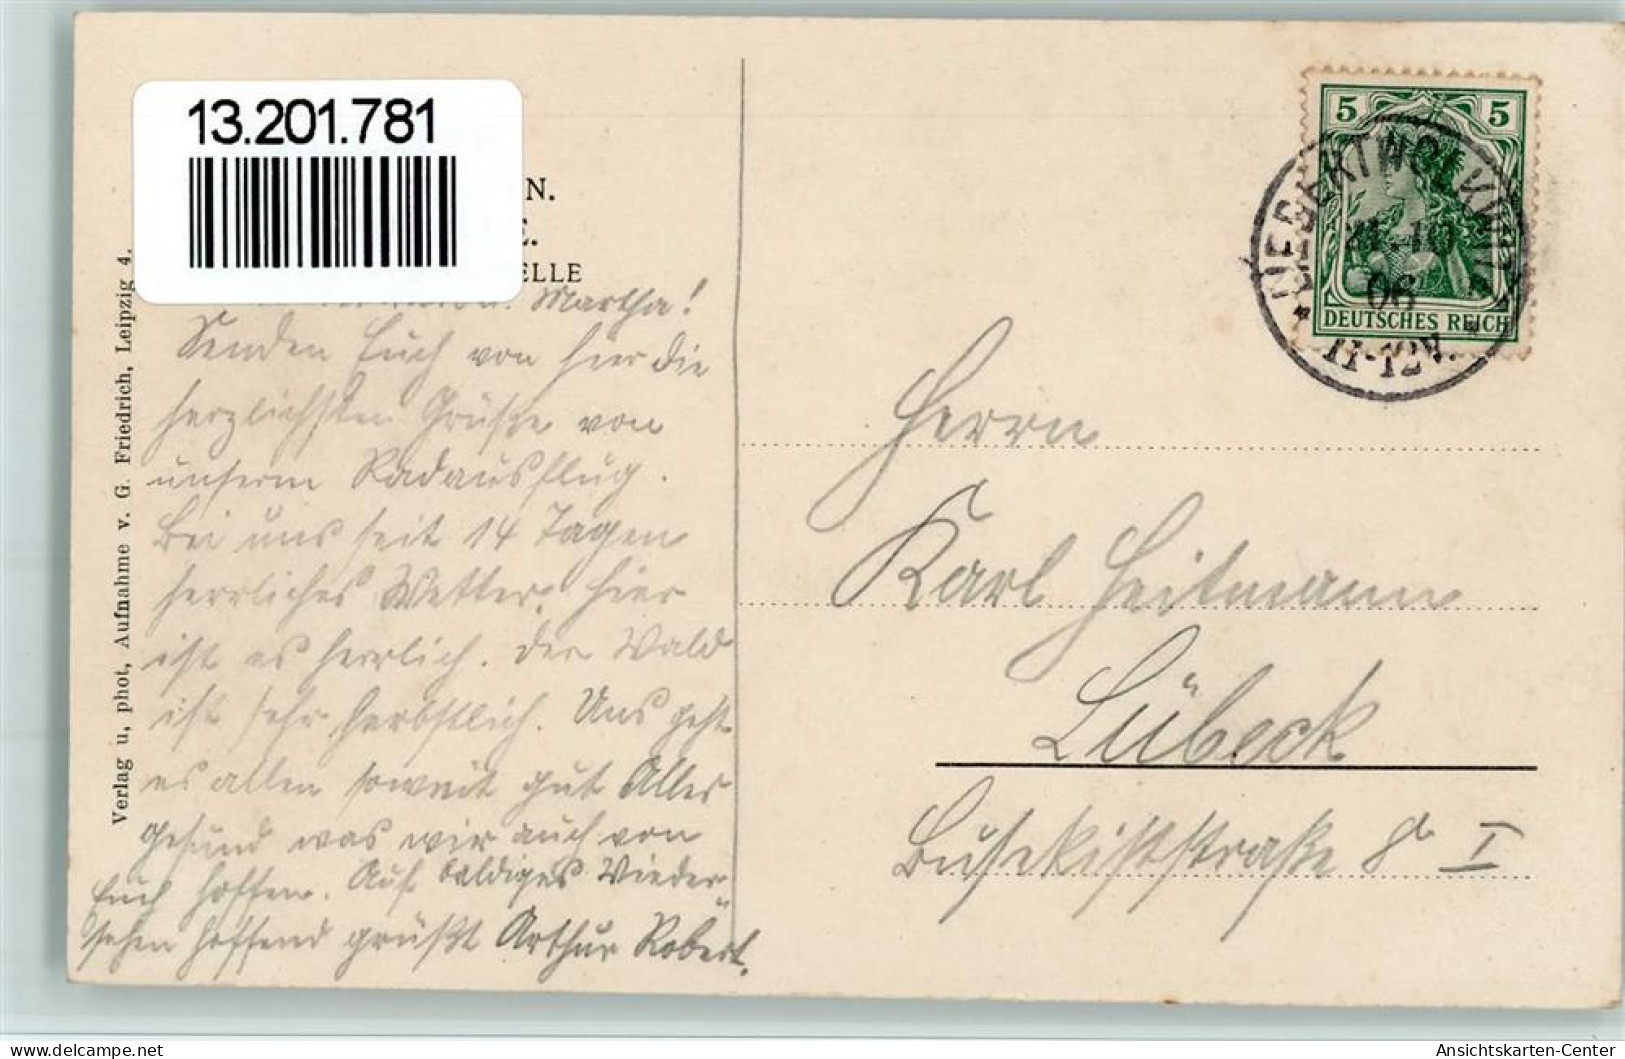 13.201.781
N.
E.
ELLE
Martha!
Senden Euch von hier die
herzlichsten Grüße von
unserm Radausflug.
Bei uns seit 14 Tagen
herrliches Wetter. Hier
ist es herrlich. Der Wald
ist sehr herbstlich. Uns geht
es allen soweit gut Alles
gesund was wir auch von
Euch hoffen. Auf baldiges Wieder
sehen hoffend grüßt Arthur Robert.
Verlag u, phot, Aufnahme v. G. Friedrich, Leipzig 4.
5 5
DEUTSCHES REICH
LIEBERTWOLKWITZ
10
06
11-12V.
Herrn
Karl Heitmann
Lübeck
8a I
delcampe.net
Ansichtskarten-Center